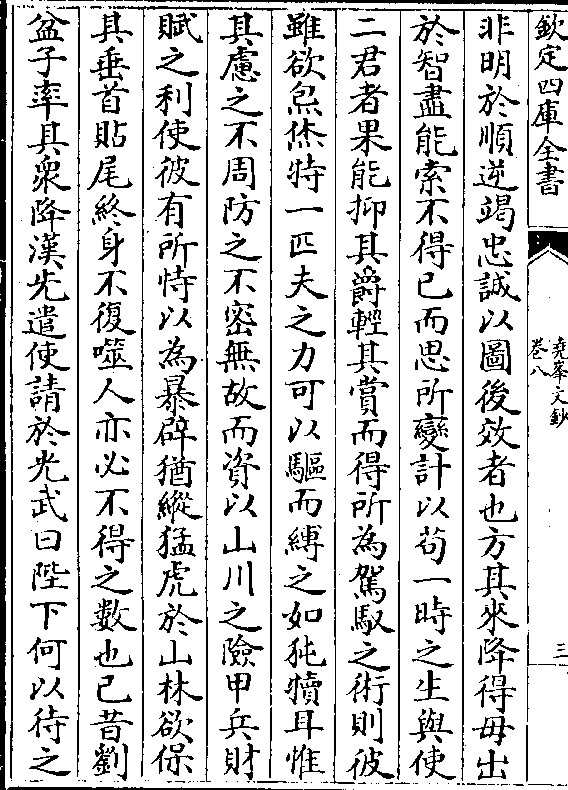 欽定四庫全書
堯峯文鈔
卷八
三
非明於順逆竭忠誠以圖後效者也方其來降得毋出
於智盡能索不得已而思所變計以苟一時之生與使
二君者果能抑其爵輕其賞而得所為駕馭之術則彼
雖欲炰烋特一匹夫之力可以驅而縛之如㹠犢耳惟
其慮之不周防之不密無故而資以山川之險甲兵財
賦之利使彼有所恃以為暴辟猶縱猛虎於山林欲保
其垂首貼尾終身不復噬人亦必不得之數也已昔劉
盆子率其衆降漢先遣使請於光武曰陛下何以待之